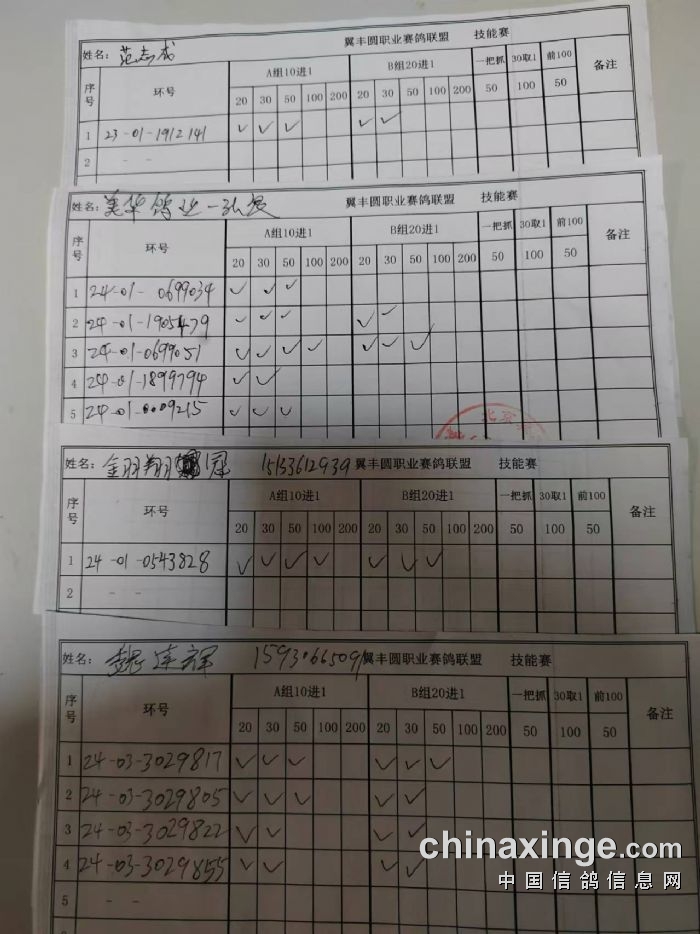 姓名: 范志成 翼丰圆职业赛鸽联盟 技能赛
序号 环号 A组10进1 B组20进1 一把抓 30取1 前100 备注
20 30 50 100 200 20 30 50 100 200 50 100 50
1 23-01-1912141 ✓ ✓ ✓ ✓ ✓
2 - -
姓名: 美华鸽业一 翼丰圆职业赛鸽联盟 技能赛
序号 环号 A组10进1 B组20进1 一把抓 30取1 前100 备注
20 30 50 100 200 20 30 50 100 200 50 100 50
1 24-01-0699034 ✓ ✓ ✓
2 24-01-1905479 ✓ ✓ ✓ ✓ ✓
3 24-01-0699051 ✓ ✓ ✓ ✓ ✓ ✓ ✓
4 24-01-1899794 ✓ ✓
5 24-01-0009215 ✓ ✓ ✓
北京
姓名: 金羽翔 冠 15133612939 翼丰圆职业赛鸽联盟 技能赛
序号 环号 A组10进1 B组20进1 一把抓 30取1 前100 备注
20 30 50 100 200 20 30 50 100 200 50 100 50
1 24-01-0543828 ✓ ✓ ✓ ✓ ✓ ✓ ✓
2 - -
姓名: 魏连辉 15930665091 翼丰圆职业赛鸽联盟 技能赛
序号 环号 A组10进1 B组20进1 一把抓 30取1 前100 备注
20 30 50 100 200 20 30 50 100 200 50 100 50
1 24-03-3029817 ✓ ✓ ✓ ✓ ✓ ✓
2 24-03-3029805 ✓ ✓ ✓ ✓ ✓
3 24-03-3029822 ✓ ✓ ✓ ✓
4 24-03-3029855 ✓ ✓ ✓ ✓
5 - -
chinaxinge.com
中国信鸽信息网